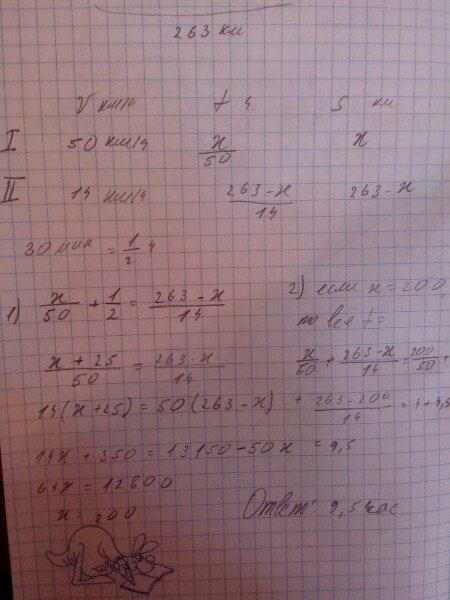 263 км
V км/ч t ч. S км
I 50 км/ч x/50 x
II 14 км/ч 263-x/14 263-x
30 мин = 1/2 ч
1) x/50 + 1/2 = 263-x/14
x+25/50 = 263-x/14
14(x+25) = 50(263-x)
14x + 350 = 13150-50x
64x = 12800
x = 200
2) если x=200,
то всё t=
x/50 + 263-x/14 = 200/50 +
+ 263-200/14 = 4+4,5
= 9,5
Ответ: 9,5 час